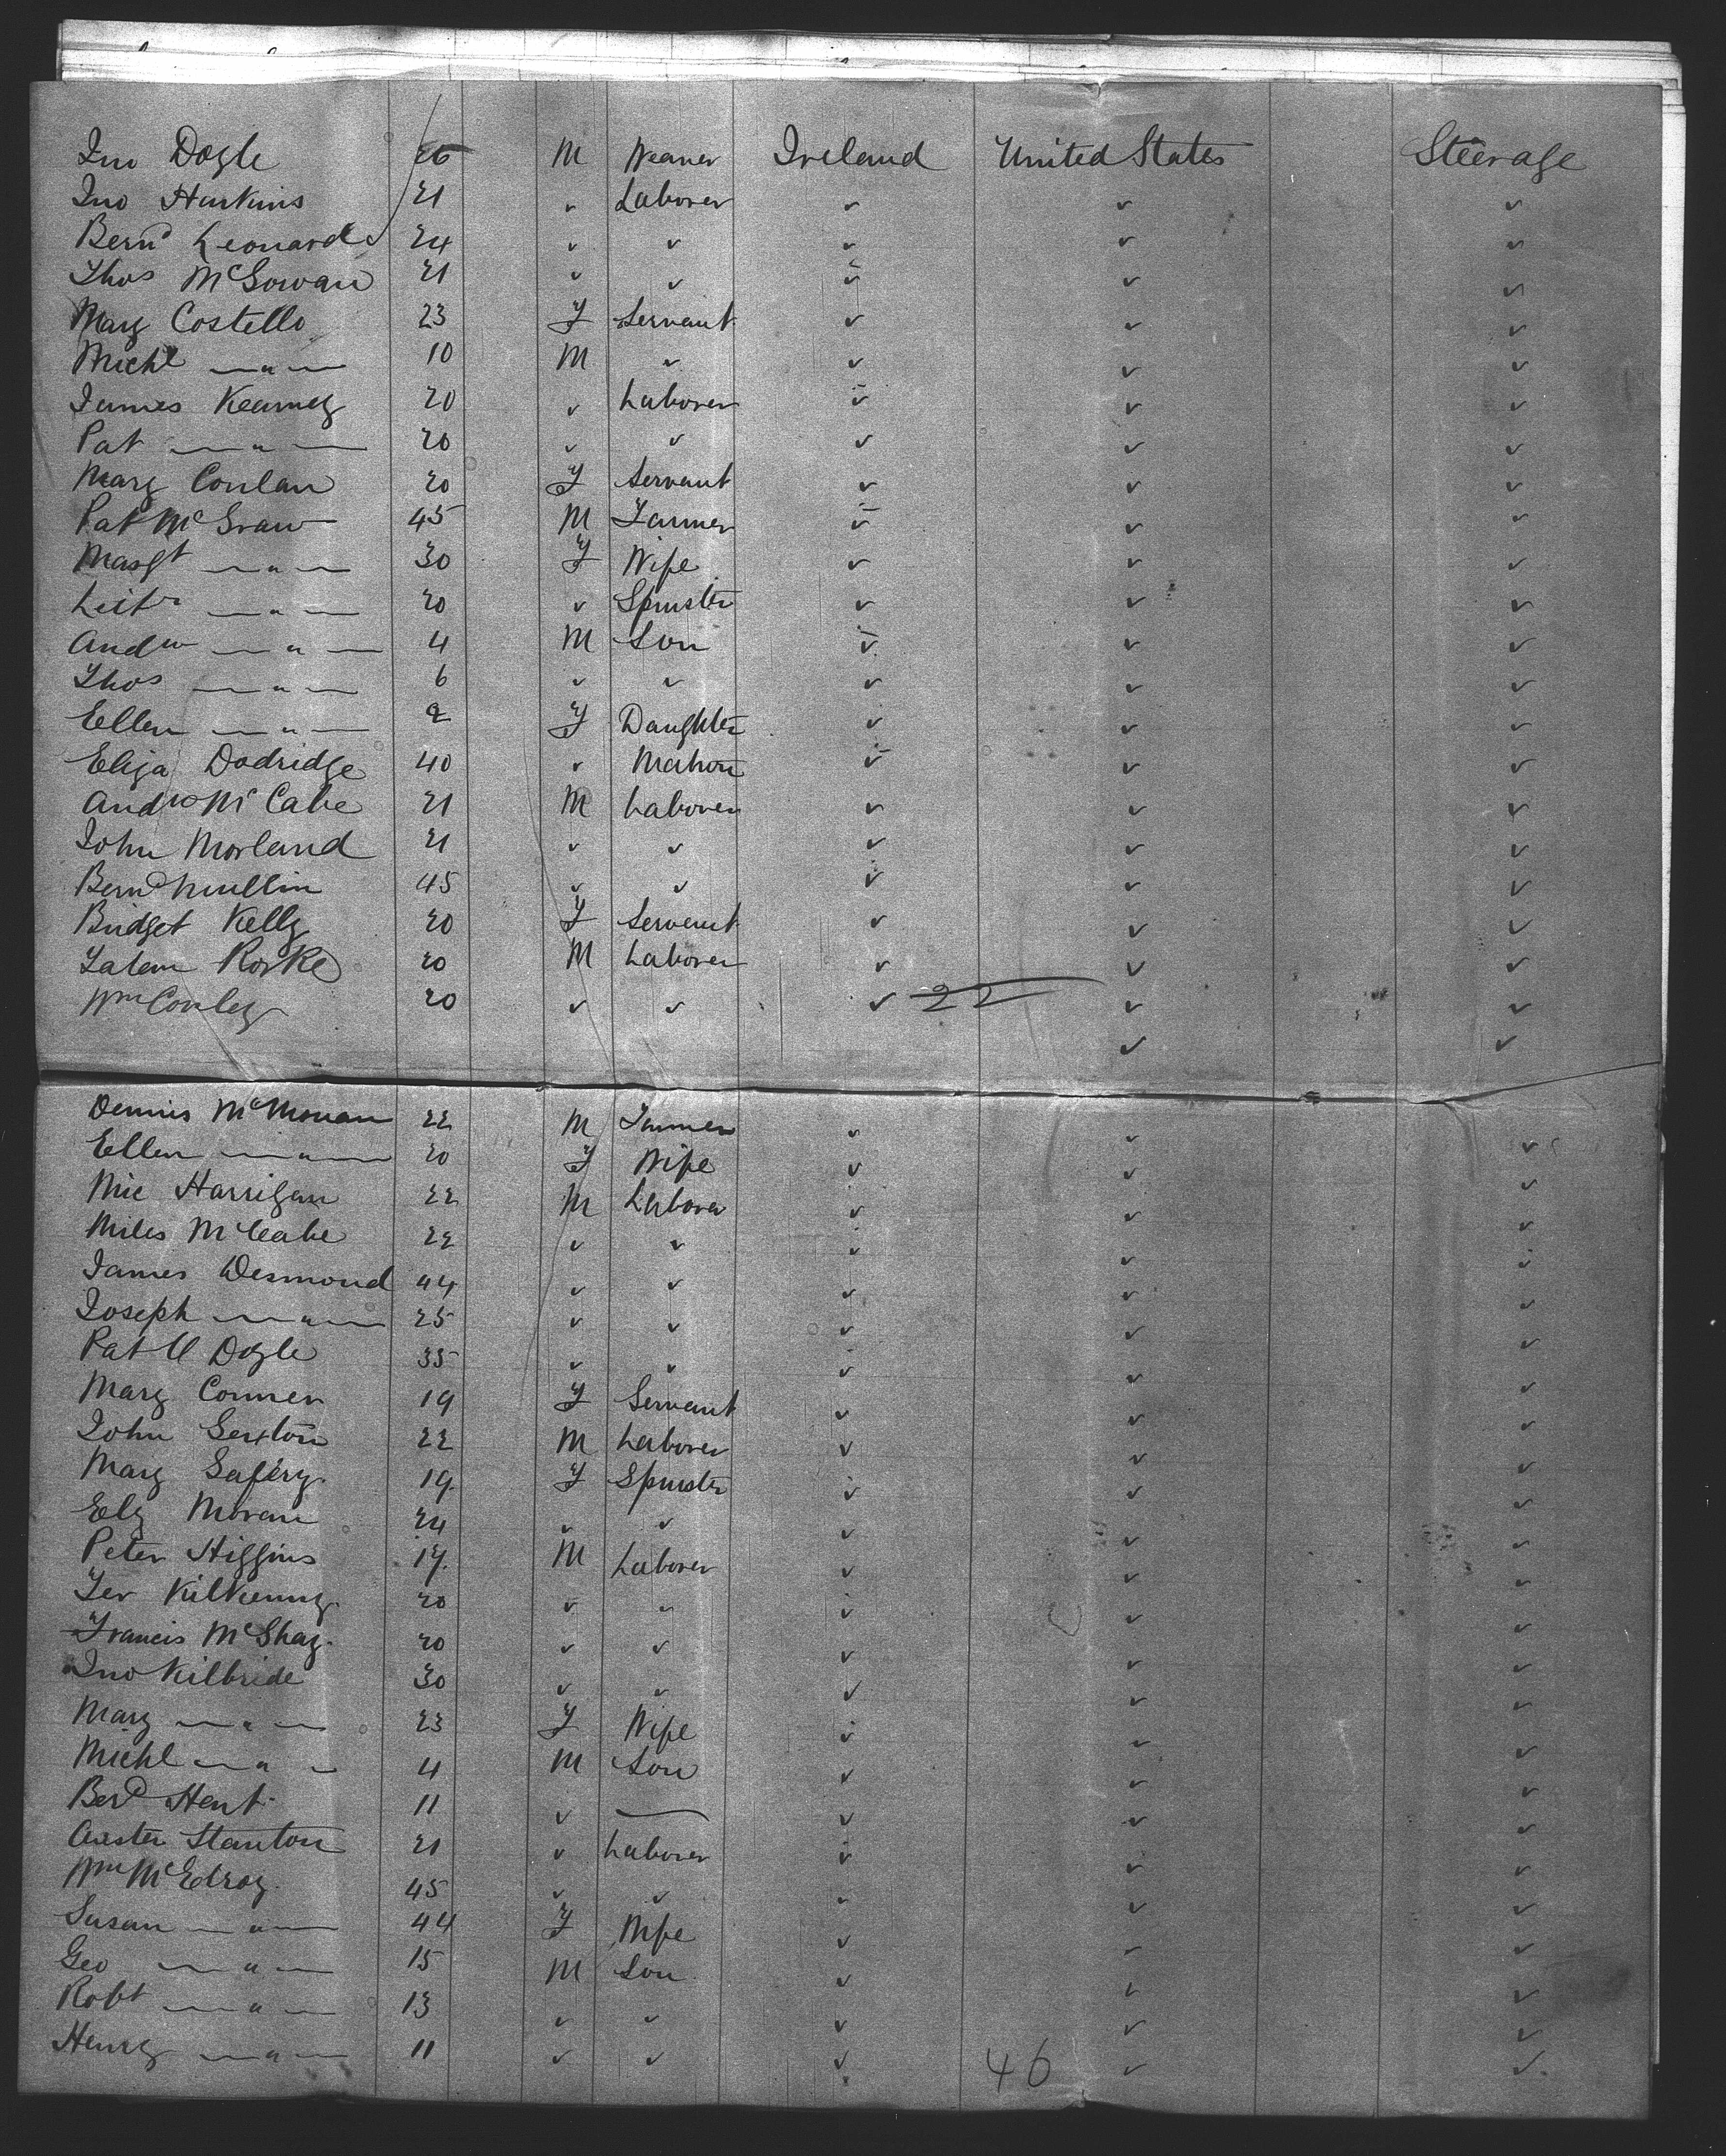 Jno Doyle 26 M Weaver Ireland United States Steerage
Jno Harkins 21 " Laborer " " "
Bernd Leonard 24 " " " " "
Thos McGowan 21 " " " " "
Mary Costello 23 F Servant " " "
Michl —"— 10 M " " " "
James Kearney 20 " Laborer " " "
Pat —"— 20 " " " " "
Mary Conlan 20 F Servant " " "
Pat McGraw 45 M Farmer " " "
Margt —"— 30 F Wife " " "
—"— 20 " Spinster " " "
Andw —"— 4 M Son " " "
Thos —"— 6 " " " " "
Ellen —"— 9 F Daughter " " "
Eliza Dodridge 40 " Matron " " "
Andw McCabe 21 M Laborer " " "
John Morland 21 " " " " "
Bernd Mullin 45 " " " " "
Bridget Kelly 20 F Servant " " "
Rorke 20 M Laborer " " "
Wm Conley 20 " " " 22 " "
" "
Dennis McMoran 22 M Farmer " " "
Ellen —"— 20 F Wife " " "
Mic Harrigan 22 M Laborer " " "
Miles McCabe 22 " " " " "
James Desmond 44 " " " " "
Joseph —"— 25 " " " " "
Patk Doyle 35 " " " " "
Mary Conner 19 F Servant " " "
John Sexton 22 M Laborer " " "
Mary 19 F Spinster " " "
Elz Moran 24 " " " " "
Peter Higgins 17 M Laborer " " "
Jer Kilkenny 20 " " " " "
Francis McShay 20 " " " " "
Jno Kilbride 30 " " " " "
Mary —"— 23 F Wife " " "
Michl —"— 4 M Son " " "
Berd Hent 11 " — " " "
Austen Stanton 21 " Laborer " " "
Wm McElroy 45 " " " " "
Susan —"— 44 F Wife " " "
Geo —"— 15 M Son " " "
Robt —"— 13 " " " " "
Henry —"— 11 " " " 46 " "